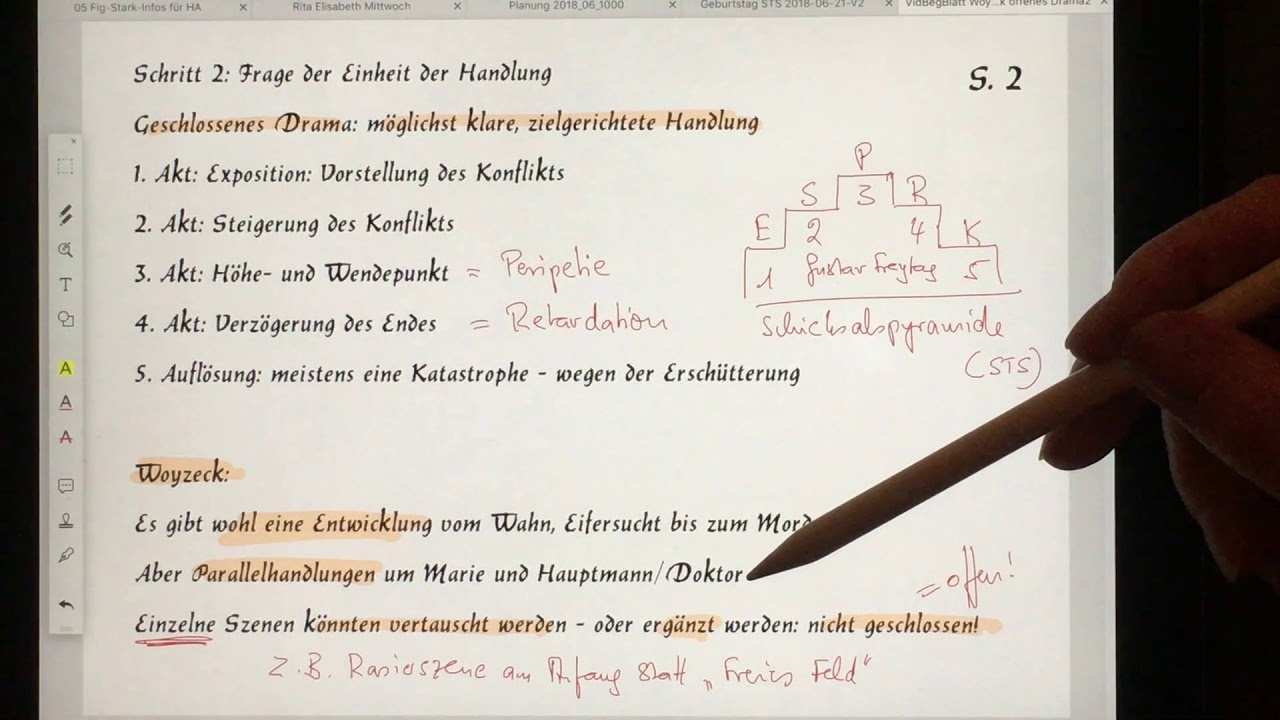 05 Fig-Stark-Infos für HA
Rita Elisabeth Mittwoch
Planung 2018_06_1000
Geburtstag STS 2018-06-21-V2
VidBegBlatt Woy...k offenes Drama2
Schritt 2: Frage der Einheit der Handlung
S. 2
Geschlossenes Drama: möglichst klare, zielgerichtete Handlung
1. Akt: Exposition: Vorstellung des Konflikts
2. Akt: Steigerung des Konflikts
3. Akt: Höhe- und Wendepunkt = Peripetie
4. Akt: Verzögerung des Endes = Retardation
5. Auflösung: meistens eine Katastrophe - wegen der Erschütterung
P
S 3 R
E 2 4 K
1 Gustav Freytag 5
Schicksalspyramide
(STS)
Woyzeck:
Es gibt wohl eine Entwicklung vom Wahn, Eifersucht bis zum Mord
Aber Parallelhandlungen um Marie und Hauptmann/Doktor
= offen!
Einzelne Szenen könnten vertauscht werden - oder ergänzt werden: nicht geschlossen!
Z.B. Rasierszene am Anfang statt „Freies Feld"
T
A
A
A